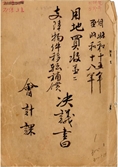 自昭和十五年
至昭和十八年
用地買収並ニ
支障物件移転補償
決議書
會計課